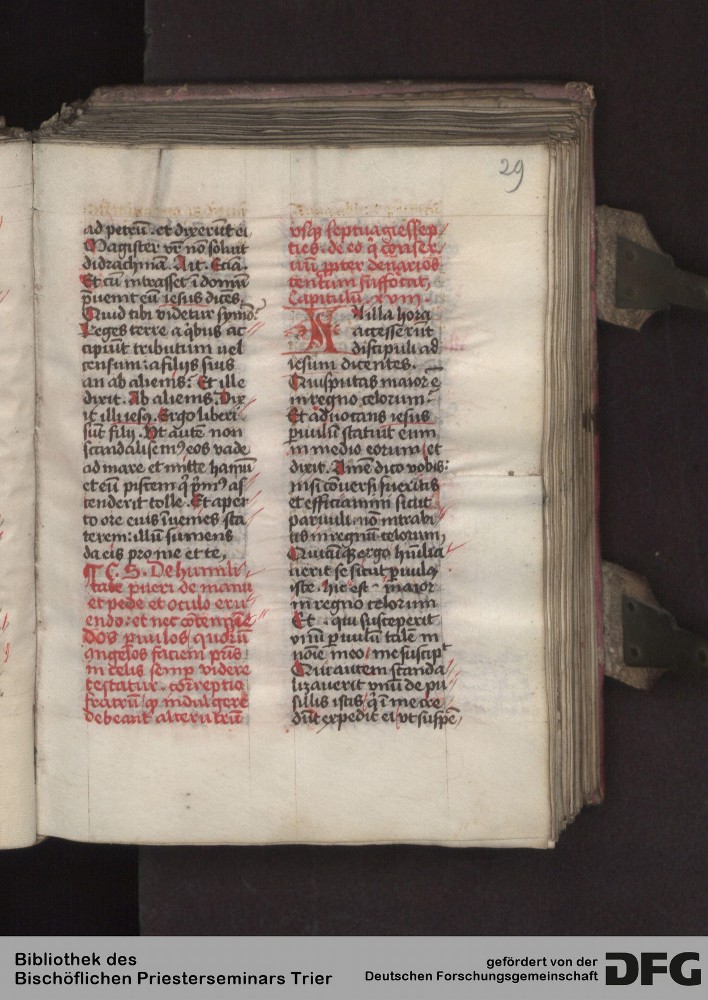 29
ad petrū . et dixerūt ei
Magister vr̄ nō soluit
didrachmā . Ait . Eciā .
Et cū intrasset ī domū
p̄uenit eū iesus dicēs
Quid tibi videtur symō :
Reges terre a qͥbus ac
cipiūt tributum uel
censum : a filijs suis
an ab alienis : Et ille
dixit . Ab alienis . Dix
it illi iesꝰ . Ergo liberi
sūt filij . Vt autē non
scandalisemꝰ eos vade
ad mare et mitte hamū
et eū piscem qͥ pͥmꝰ as
tenderit tolle . Et aper
to ore eius īuenies sta
terem : illū sumens
da eis pro me et te ,
¶ C . S . De humili
tate pueri de manu
et pede et oculo eru
endo : et nec cōtempnē
dos p̄uulos quorū
angelos faciem pr̄is
in celis semp̄ videre
testatur . correptio
fratrū / qͥ indulgere
debeant alterutrū
vsqꝫ septuagiessep
ties . de eo qͥ conser
uū ꝓpter denarios
centum suffocat ,
Capitulū . xviii .
IN illa hora
accesserūt
discipuli ad
iesum dicentes .
Quis putas maior ē
in regno celorum :
Et aduocans iesus
p̄uulū statuit eum
in medio eorum / et
dixit . Amē dico vobis :
nisi cōuersi fueritis
et efficiamini sicut
paruuli . nō intrabi
tis in regnū celorum ,
Quicūqꝫ ergo hūilia
uerit se sicut p̄uulꝰ
iste . hic est maior
in regno celorum
Et . qui susceperit
vnū p̄uulū talē in
noīe meo / me suscipͭ
Qui autem scanda
lizauerit vnū de pu
sillis istis / qͥ ī me cre
dūt expedit ei / vt suspē
Bibliothek des
Bischöflichen Priesterseminars Trier
gefördert von der
Deutschen Forschungsgemeinschaft
DFG